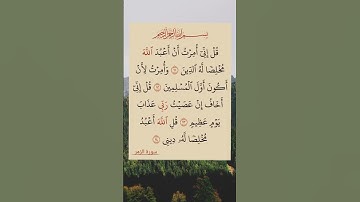 بِسْمِ اللَّهِ الرَّحْمَٰنِ الرَّحِيمِ
قُلْ إِنِّىٓ أُمِرْتُ أَنْ أَعْبُدَ ٱللَّهَ
مُخْلِصًا لَّهُ ٱلدِّينَ ۝١١ وَأُمِرْتُ لِأَنْ
أَكُونَ أَوَّلَ ٱلْمُسْلِمِينَ ۝١٢ قُلْ إِنِّىٓ
أَخَافُ إِنْ عَصَيْتُ رَبِّى عَذَابَ
يَوْمٍ عَظِيمٍ ۝١٣ قُلِ ٱللَّهَ أَعْبُدُ
مُخْلِصًا لَّهُۥ دِينِى ۝١٤
سورة الزمر